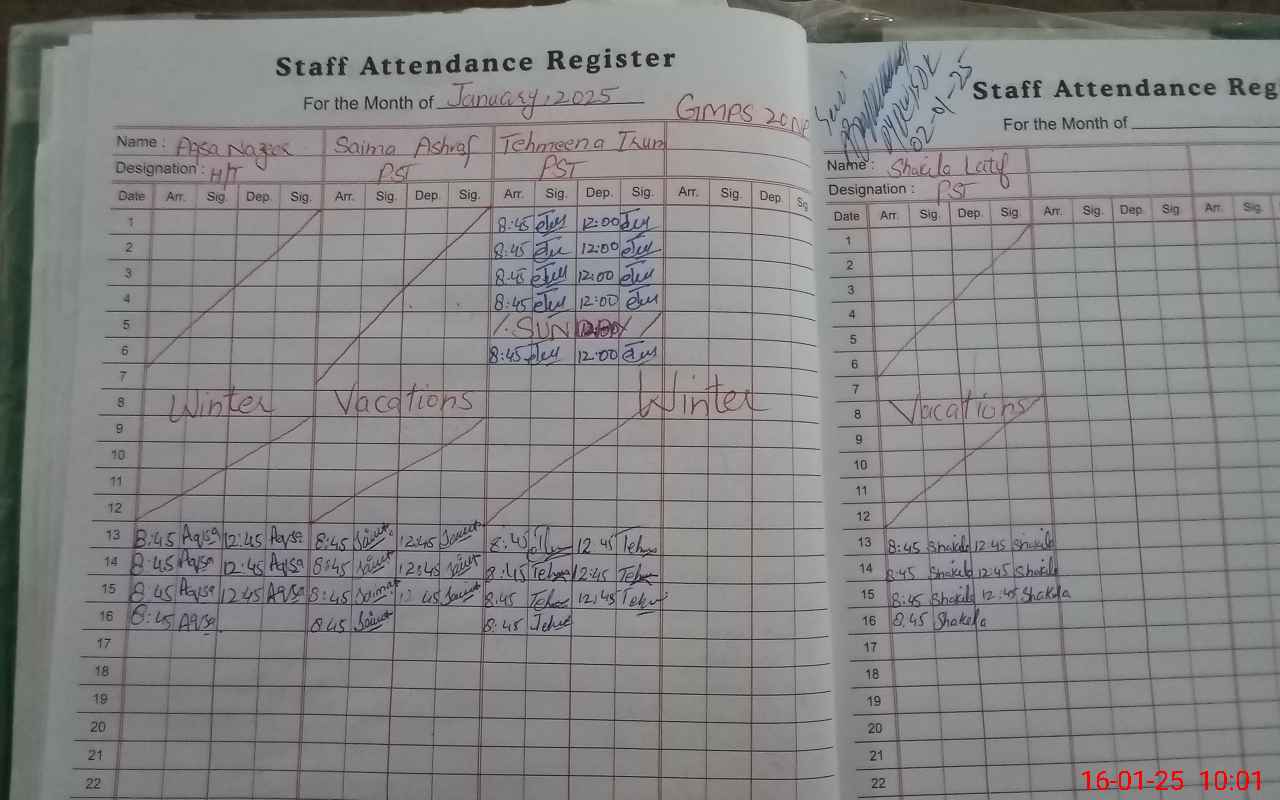 Staff Attendance Register
For the Month of January, 2025
GMPS 20
Name : Aqsa Nazeer Saima Ashraf Tehmeena
Designation : H/T PST PST
Date Arr. Sig. Dep. Sig. Arr. Sig. Dep. Sig. Arr. Sig. Dep. Sig. Arr. Sig. Dep. Sig
1 8:45 12:00
2 8:45 12:00
3 8:45 12:00
4 8:45 12:00
5 SUN
6 8:45 12:00
7
8 Winter Vacations Winter
9
10
11
12
13 8:45 Aqsa 12:45 Aqsa 8:45 12:45 8:45 12:45
14 8:45 Aqsa 12:45 Aqsa 8:45 12:45 8:45 12:45
15 8:45 Aqsa 12:45 Aqsa 8:45 Saima 12:45 8:45 12:45
16 8:45 Aqsa 8:45 8:45
17
18
19
20
21
22
02-01-25
Staff Attendance Reg
For the Month of
Name : Shakila Latif
Designation : PST
Date Arr. Sig. Dep. Sig. Arr. Sig. Dep. Sig. Arr. Sig.
1
2
3
4
5
6
7
8 Vacations
9
10
11
12
13 8:45 Shakila 12:45 Shakila
14 8:45 Shakila 12:45 Shakila
15 8:45 Shakila 12:45 Shakila
16 8:45 Shakela
17
18
19
20
21
22
16-01-25 10:01